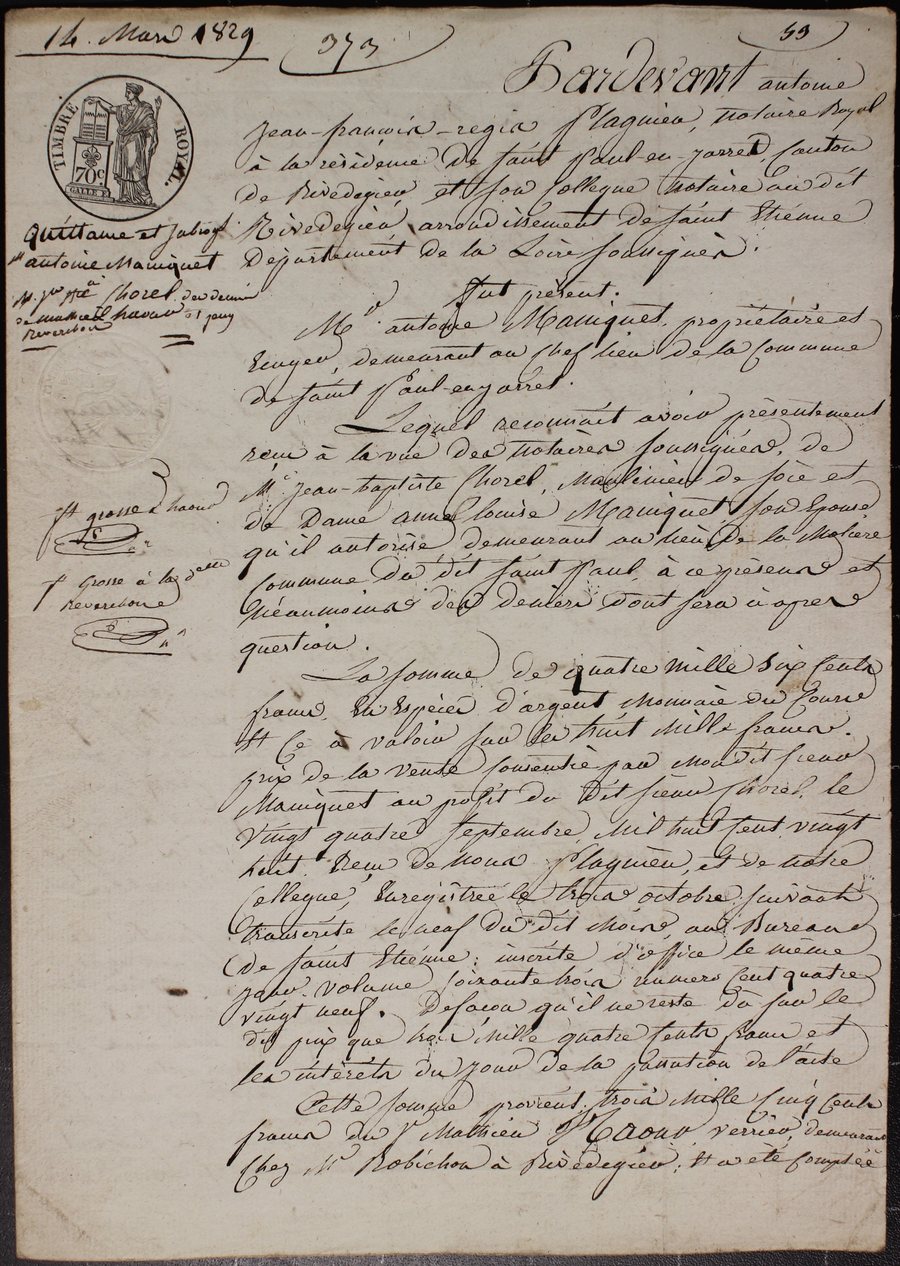 14. Mars 1829
373
53
TIMBRE ROYAL.
70c
Quittance et subrog
antoine Maniquet
Chorel
Reverchon
ft grosse à haour
ft grosse à la delle
Reverchon
Pardevant antoine
Jean-françois-regis Flaguieu, Notaire Royal
à la résidence de saint Paul-en-jarret, Canton
de Rivedegier, et son Collegue Notaire au dit
Rivedegier, arrondissement de saint Etienne
Département de la Loire soussignés.
Fut présent.
Mr antoine Maniquet, propriétaire et
demeurant au Chef lieu de la Commune
de saint Paul-en-jarret.
Lequel reconnait avoir présentement
reçu à la vue des Notaires soussignés, de
Mr Jean-baptiste Chorel, Moulinier de soie et
de Dame anne louise Maniquet, son Epouse
qu'il autorise, demeurant au lieu de la Moliere
Commune du dit saint Paul, à ce présens et
Néaumoins des deniers dont sera ci après
question.
La somme de quatre mille six Cents
francs, En Espèces d'argent Monnaie du Cours
Et Ce à valoir sur les huit Mille francs.
prix de la vente consentie par Mondit sieur
Maniquet au profit du Dit sieur Chorel, le
vingt quatre septembre, Mil huit sent vingt
huit. Reçu de Nous Flaguieu, et de notre
Collegue, Enregistrée le trois octobre suivant
transcrite le neuf du dit Mois au Bureau
de saint Etienne; inscrite d'office le même
jour, volume soixante trois numero Cent quatre
vingt neuf. De façon qu'il ne reste dû sur le
dit prix que trois Mille quatre sents francs et
les intérêts du jour de la passation de l'acte
Cette somme provient, trois Mille Cinq Cents
francs du Sr Mathieu Haour, verrier, demeurant
Chez Mr Robichon à Rivedegier; Et a été Comptée